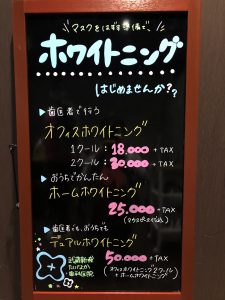 マスクをはずす準備で、
ホワイトニング
はじめませんか??
▶歯医者で行う
オフィスホワイトニング
1クール:18.000+TAX
2クール:30.000+TAX
▶おうちでかんたん
ホームホワイトニング
25.000+TAX
(マウスピース代込)
▶歯医者でも、おうちでも
デュアルホワイトニング
50.000+TAX
(オフィスホワイトニング2クール
+ホームホワイトニング)
歯科医院